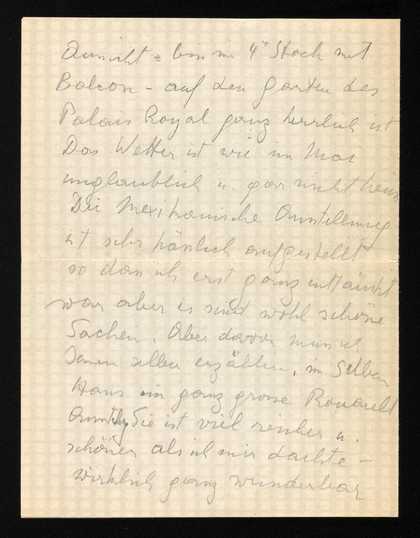 Aussicht – bin im 4ᵗ Stock mit
Balcon – auf den Garten des
Palais Royal ganz herrlich ist
Das Wetter ist wie im Mai
unglaublich u. gar nicht
Die Mexikanische Ausstellung
ist sehr hässlich aufgestellt
so dass ich erst ganz enttäuscht
war aber es sind wohl schöne
Sachen. Aber davon muss ich
Ihnen selber erzählen, im selben
Haus ein ganz grosse Rouault
Ausstllg Sie ist viel reicher u.
schöner als ich mir dachte –
wirklich ganz wunderbar